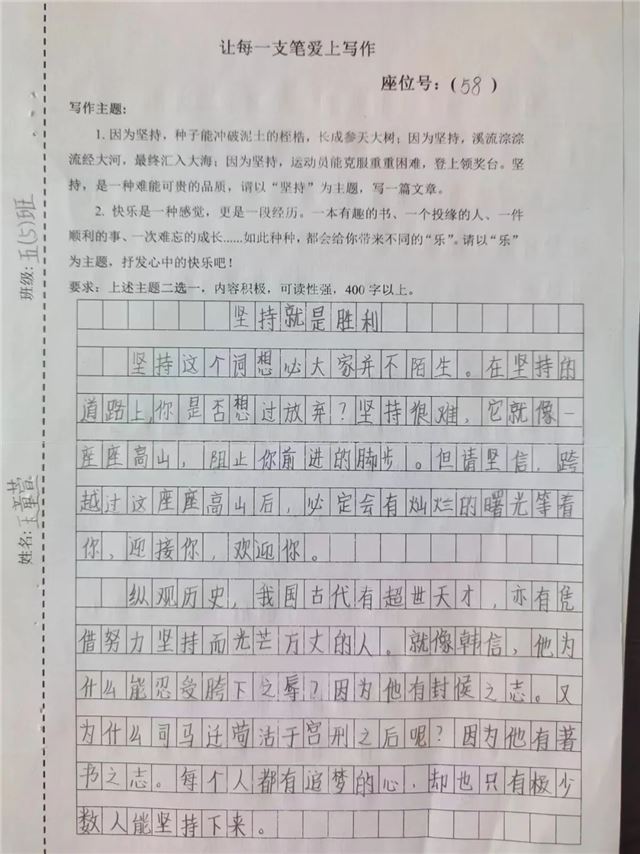 让每一支笔爱上写作
座位号：(58)
写作主题：
1. 因为坚持，种子能冲破泥土的桎梏，长成参天大树；因为坚持，溪流淙淙
流经大河，最终汇入大海；因为坚持，运动员能克服重重困难，登上领奖台。坚
持，是一种难能可贵的品质，请以“坚持”为主题，写一篇文章。
2. 快乐是一种感觉，更是一段经历。一本有趣的书、一个投缘的人、一件
顺利的事、一次难忘的成长......如此种种，都会给你带来不同的“乐”。请以“乐”
为主题，抒发心中的快乐吧！
要求：上述主题二选一，内容积极，可读性强，400字以上。
坚持就是胜利
坚持这个词想必大家并不陌生。在坚持的
道路上，你是否想过放弃？坚持很难，它就像一
座座高山，阻止你前进的脚步。但请坚信，跨
越过这座座高山后，必定会有灿烂的曙光等着
你，迎接你，欢迎你。
纵观历史，我国古代有超世天才，亦有凭
借努力坚持而光芒万丈的人。就像韩信，他为
什么能忍受胯下之辱？因为他有封侯之志。又
为什么司马迁苟活于宫刑之后呢？因为他有著
书之志。每个人都有追梦的心，却也只有极少
数人能坚持下来。
班级：五(5)班
姓名：